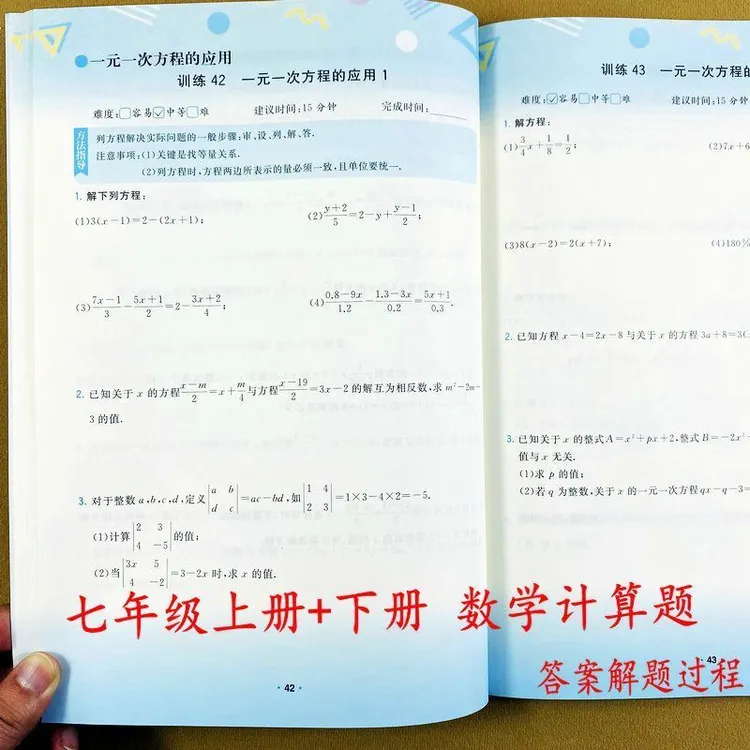 一元一次方程的应用
训练 42 一元一次方程的应用 1
难度:□容易☑中等□难 建议时间:15 分钟 完成时间:
方法指导
列方程解决实际问题的一般步骤:审、设、列、解、答.
注意事项:(1)关键是找等量关系.
(2)列方程时,方程两边所表示的量必须一致,且单位要统一.
1. 解下列方程:
(1)3(x-1)=2-(2x+1); (2)(y+2)/5=2-y+(y-1)/2;
(3)(7x-1)/3-(5x+1)/2=2-(3x+2)/4; (4)(0.8-9x)/1.2-(1.3-3x)/0.2=(5x+1)/0.3.
2. 已知关于 x 的方程(x-m)/2=x+m/4与方程(x-19)/2=3x-2的解互为相反数,求 m²-2m-
3 的值.
3. 对于整数 a,b,c,d,定义|a b; d c|=ac-bd,如|1 4; 2 3|=1×3-4×2=-5.
(1)计算|2 3; 4 -5|的值;
(2)当|3x 5; 4 -2|=3-2x 时,求 x 的值.
· 42 ·
训练 43 一元一次方程的
难度:☑容易□中等□难 建议时间:15 分
1. 解方程:
(1)3/4x+1/8=1/2; (2)7x+6
(3)8(x-2)=2(x+7); (4)180%
2. 已知方程 x-4=2x-8 与关于 x 的方程 3a+8=3(
3. 已知关于 x 的整式 A=x²+px+2,整式 B=-2x²
值与 x 无关.
(1)求 p 的值;
(2)若 q 为整数,关于 x 的一元一次方程 qx-q-3=
· 43
七年级上册+下册 数学计算题
答案解题过程